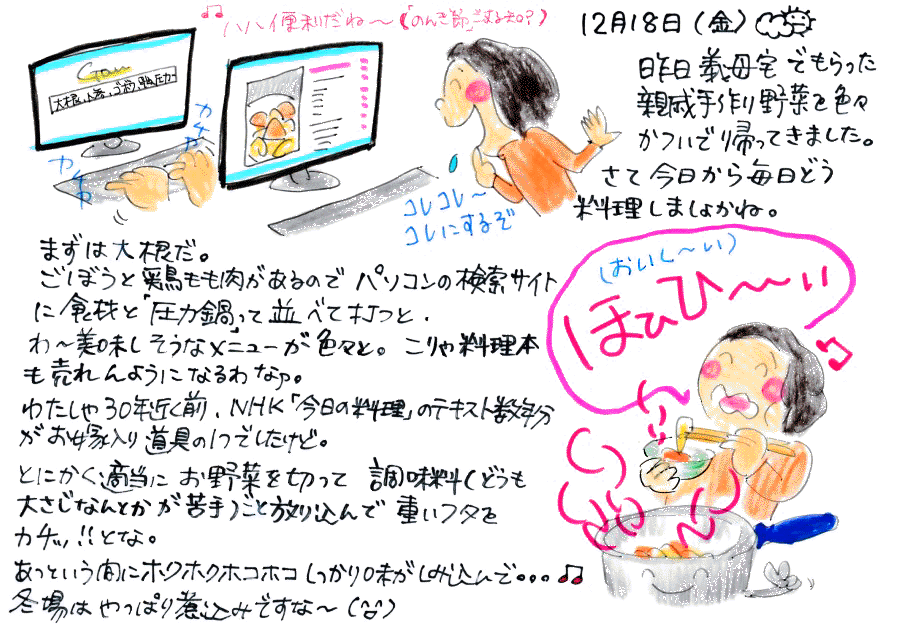 ♫ハハハ便利だね〜(「のんき節」ごぞんじ?)
12月18日(金)
昨日義母宅でもらった
親戚手作り野菜を色々
かついで帰ってきました。
さて今日から毎日どう
料理しましょかね。
大根、人参、ゴボウ、鶏、圧力
カチャカチャ
コレコレ〜
コレにするぞ
まずは大根だ。
ごぼうと鶏もも肉があるのでパソコンの検索サイト
に食材と「圧力鍋」って並べて打つと、
わ〜美味しそうなメニューが色々と。こりゃ料理本
も売れんようになるわなァ。
わたしゃ30年近く前、NHK「今日の料理」のテキスト数年分
がお嫁入り道具の1つでしたけど。
とにかく適当にお野菜を切って 調味料(どうも
大さじなんとかが苦手)ごと放り込んで重いフタを
カチッ!!とな。
あっという間にホクホクホコホコしっかり味がしみ込んで・・・♫
冬場はやっぱり煮込みですな〜
(おいし〜い)
ほひひ〜〜い